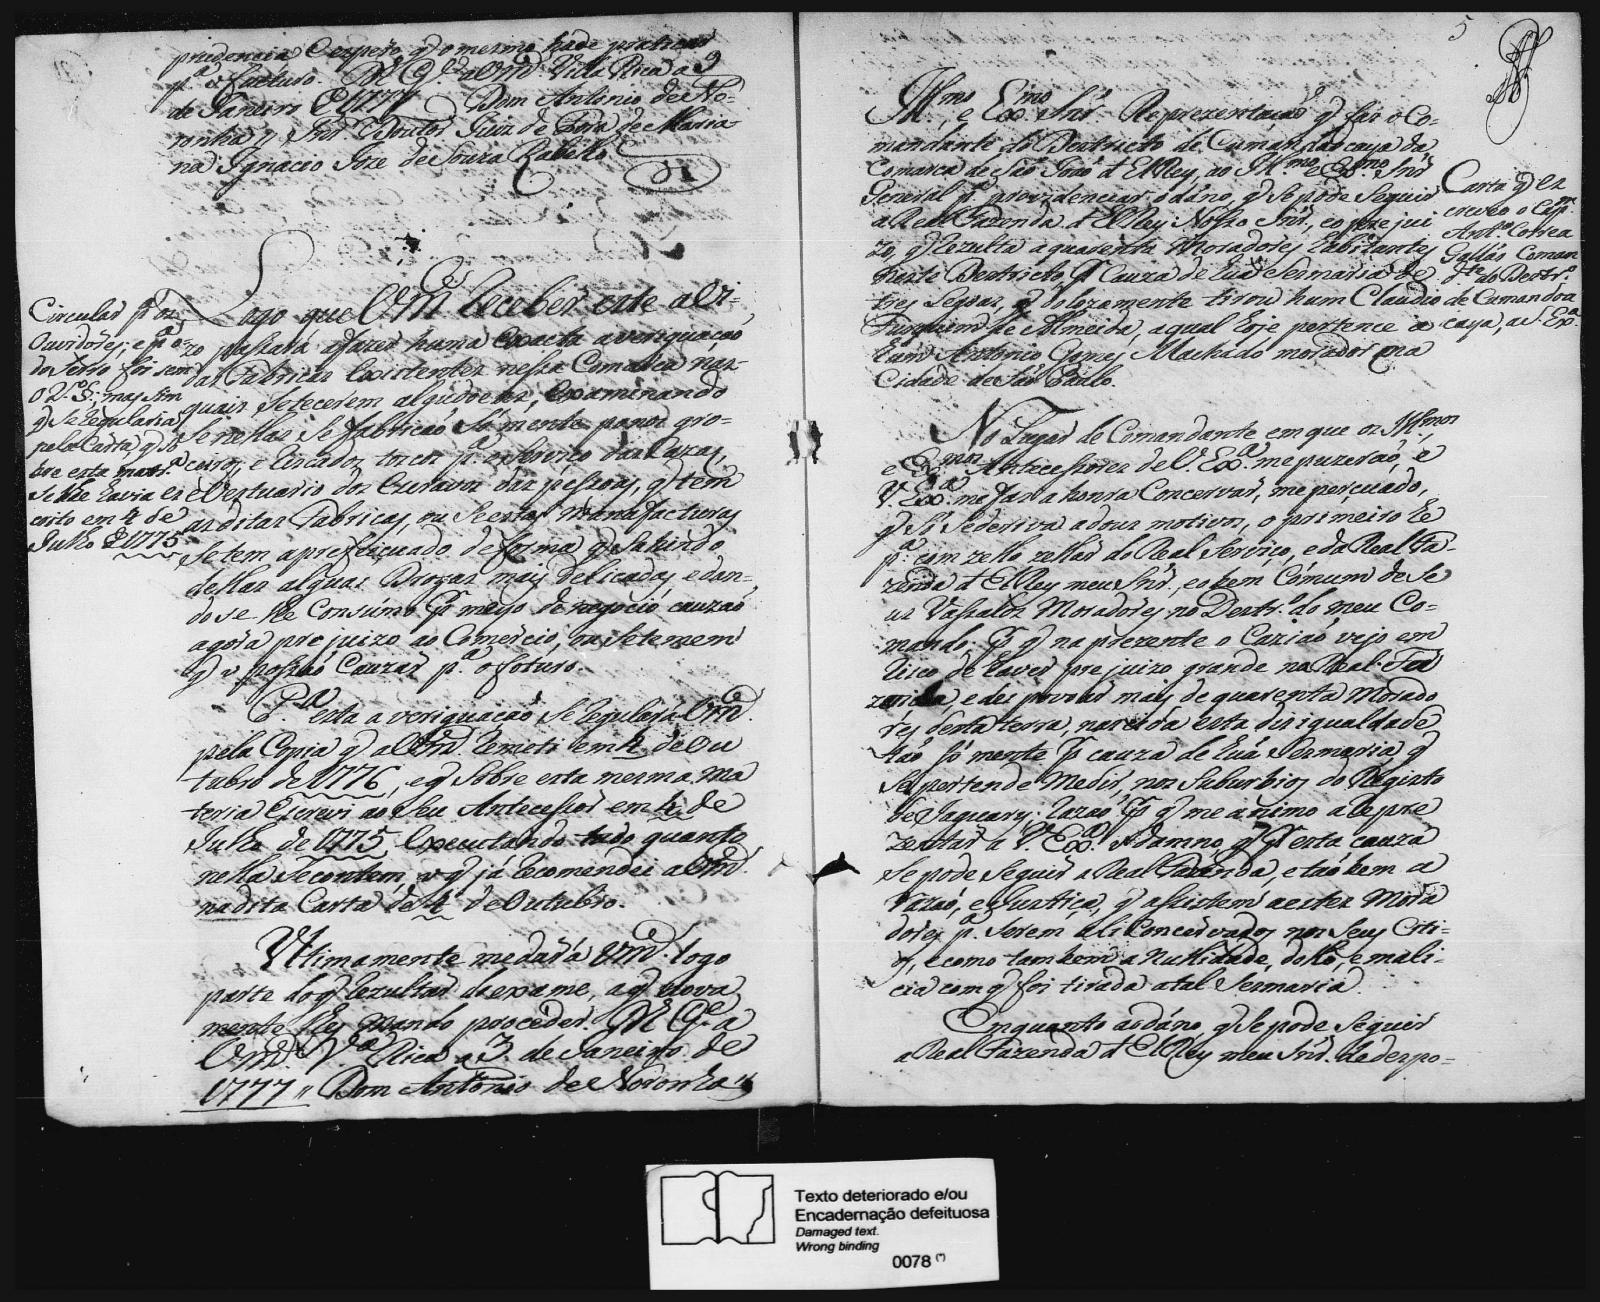 prudencia e espero q̃ o mesmo hade praticar
p.ª o futuro. D.s G.e a Vm.ce Villa Rica a 9
de Janeiro de 1777 Dom Antonio de No-
ronha // Snr Doutor Juiz de Fora de Maria-
na Ignacio Joze de Souza Rabello
Circular p.ª os
Ouvidores; e p.ª o
do Serro foi sem
o 2.º §; mas sim
q̃ se regularia
pela Carta, q̃ so
bre esta mater.ª
se lhe havia es
crito em 4 de
Julho de 1775
Logo que Vm.ce receber este avi-
zo passará a fazer huma exacta averiguação
das Fabricas existentes nessa Comarca nas
quais se tecerem algudoens, examinando
se nellas se fabricão sómente panos gro-
ceiros, e riscados torcos p.ª o serviço das Cazas,
e Vestuario dos Escravos das pessoas, q̃ tem
as ditas Fabricas, ou se estas manafacturas
se tem aprefeicuado de forma q̃ sahindo
dellas alguas Drogas mais delicadas, e dan-
dose-lhe consúmo p.r meyo de negocio, cauzão
agora prejuizo ao Comercio, ou se temem
q̃ o possão cauzar p.ª o foturo.
P.ª esta averiguação se regulará Vm.ce
pela Copia q̃ a Vm.ce remeti em 4 de Ou
tubro de 1776, e q̃ sobre esta mesma ma
teria escrevi ao seu Antecessor em 4 de
Julho de 1775, executando tudo quanto
nella se contem, o q̃ já recomendei a Vm.ce
na dita Carta de 4 de Outubro.
Ultimamente me dará Vm.ce logo
parte do q̃ rezultar do exame, a q̃ nova
mente lhe mando proceder. D.s G.e a
Vm.ce V.ª Rica a 3 de Janeiro de
1777 // Dom Antonio de Noronha //
5
Ill.mo, e Ex.mo Snr. Reprezentação q̃ faz o Co-
mandante do Destricto de Camandaocaya da
Comarca de São João d' ElRey, ao Ill.mo e Ex.mo Snr
General p.ª providenciar o dáno, q̃ se pode seguir
a Real Fazenda d' ElRey Nosso Snr, e o prejui
zo, q̃ rezulta a quarenta moradores habitantes
neste Destricto, p.r Cauza de huã Sesmaria de
tres legoas, q̃ dolozamente tirou hum Claudio
Furquim de Almeida, a qual hoje pertence a
hum Antonio Gomes Machado morador na
Cidade de São Paulo.
Carta q̃ es
creveo o Cap.m
Ant.º Correa
Galvão Coman
d.te do Destr.º
de Camandoa
caya, a S. Ex.ª
No Lugar de Comandante em que os Ill.mos
e Ex.mos Antecessores de V. Ex.ª me puzerão, e
V. Ex.ª me faz a honra Concervar, me percuado,
q̃ só se deriva a dous motivos, o primeiro he
p.ª com zello zellar do Real Serviço, e da Real Fa-
zenda d' ElRey meu Snr, e o bem Cómum de se
us Vassalos Moradores no Destr.º do meu Co-
mando; p.r q̃ na prezente o cazião vejo em
risco de haver prejuizo grande na Real Fa
zenda, e des povoar mais de quarenta Morado
res desta terra, nascida esta disigualdade
tão só mente p.r cauza de huã Sesmaria q̃
se pertende medir, nos suburbios do Registo
de Jaguary; razão p.r q̃ me animo a repre
zentar a V. Ex.ª o damno, q̃ p.r esta cauza
se pode seguir a Real Fazenda, e tão bem a
razão, e Justiça, q̃ assistem a estes Mora
dores p.ª serem ali Concervados nos seus Citi-
os, e como tambem a nullidade, dollo, e mali-
cia com q̃ foi tirada a tal Sesmaria.
Enquanto ao dáno, q̃ se pode seguir
a Real Fazenda d' ElRey meu Snr. da despo-
Texto deteriorado e/ou
Encadernação defeituosa
Damaged text.
Wrong binding
0078 (*)